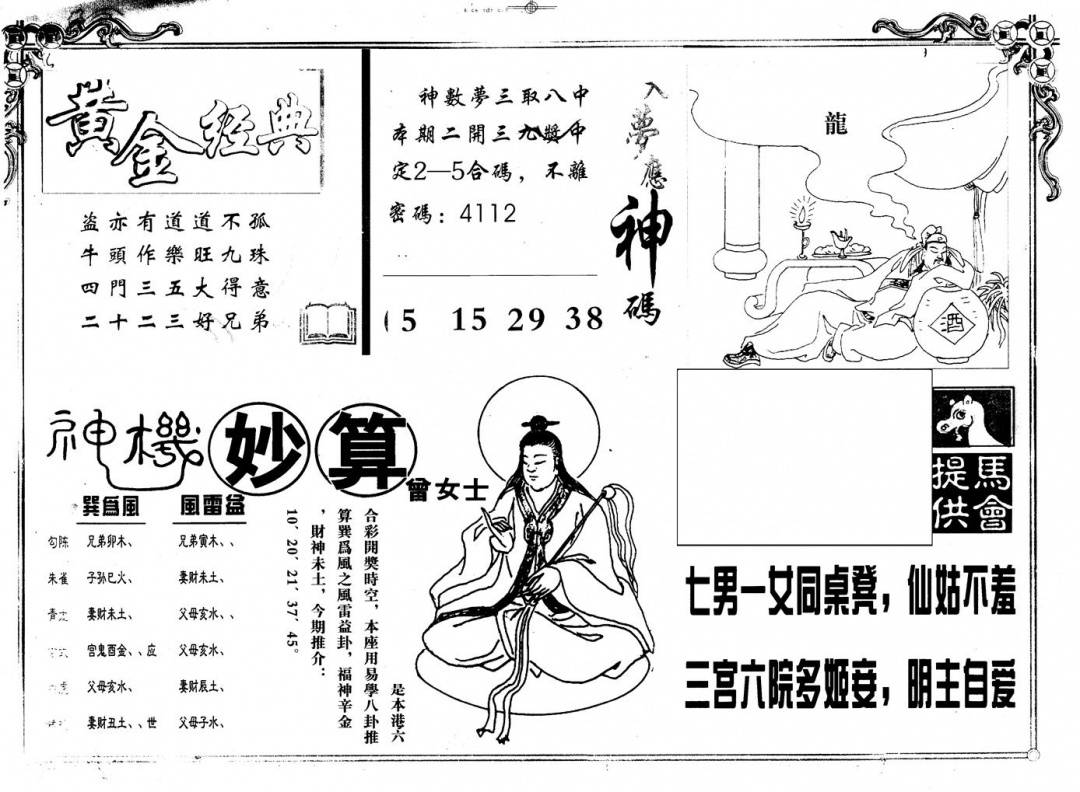 黃金經典
盜亦有道道不孤
牛頭作樂旺九珠
四門三五大得意
二十二三好兄弟
神數夢三取八中
本期二開三九獎中
定2—5合碼，不離
密碼：4112
5 15 29 38
入夢應神碼
龍
酒
馬會提供
七男一女同桌凳，仙姑不羞
三宫六院多姬妾，明主自爱
神機妙算
曾女士
巽爲風 風雷益
勾陈 兄弟卯木、 兄弟寅木、、
朱雀 子孙巳火、 妻财未土、
青 妻财未土、 父母亥水、、
官鬼酉金、、应 父母亥水、
父母亥水、 妻财辰土、
妻财丑土、、世 父母子水、
是本港六
合彩開獎時空，本座用易學八卦推
算巽爲風之風雷益卦，福神辛金
，財神未土，今期推介：
10′20′21′37′45。